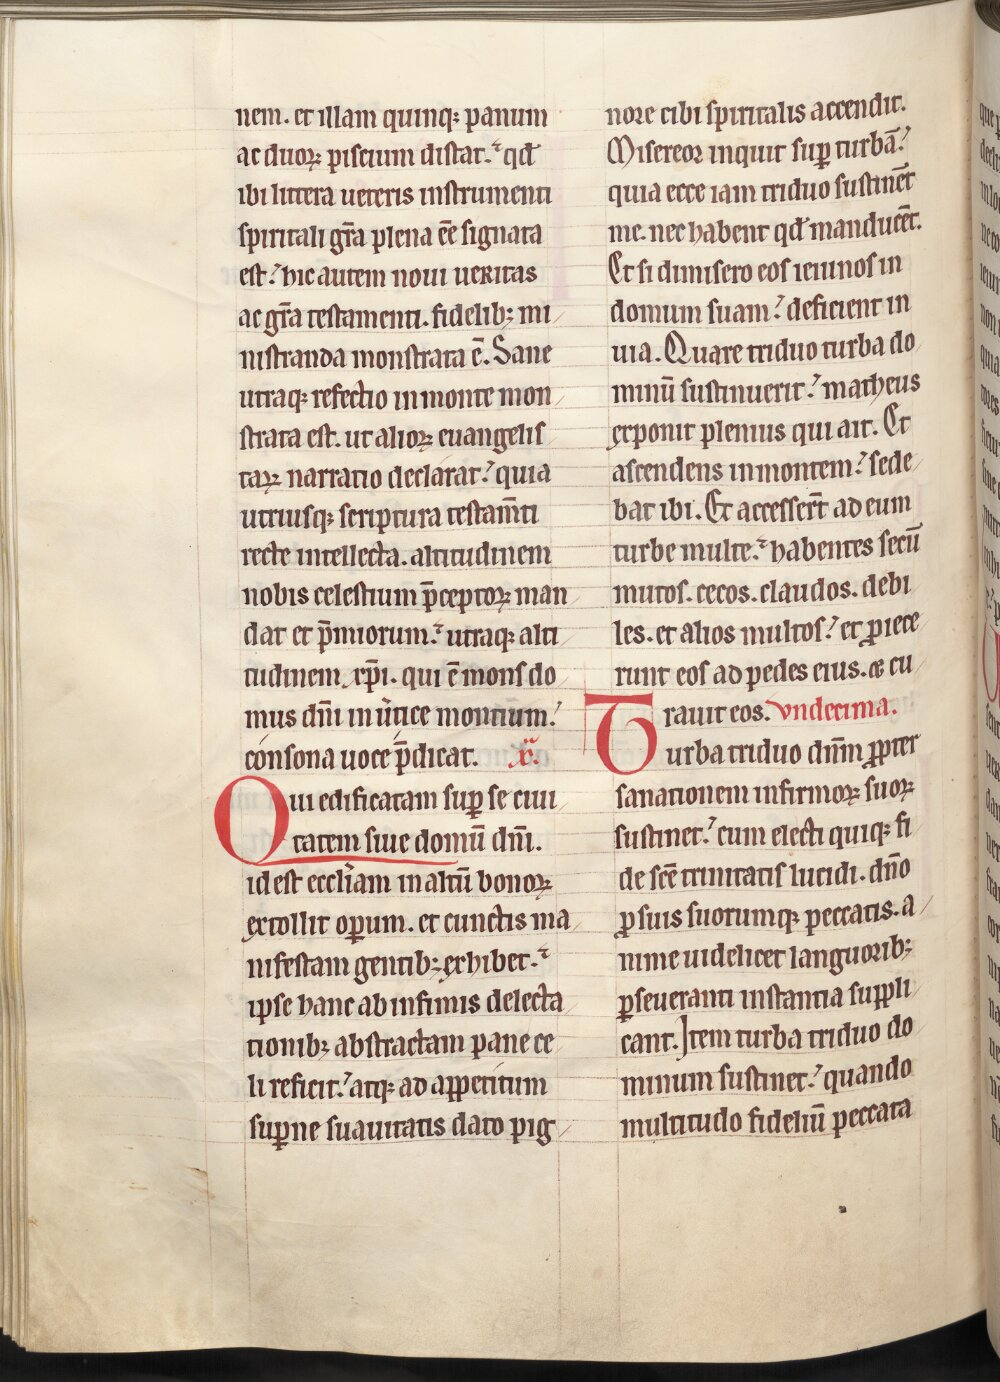 nem. et illam quinq; panum
ac duoꝝ piscium distat. qd̄
ibi littera ueteris instrumenti
spiritali gr̄a plena ēē signata
est. hic autem noui ueritas
ac gr̄a testamenti. fidelib; mi
nistranda monstrata ē. Sane
utraq; refectio in monte mon
strata est. ut alioꝝ euangelis
taꝝ narratio declarat. quia
utriusq; scriptura testam̄ti
recte intellecta. altitudinem
nobis celestium p̄ceptoꝝ man
dat et p̄miorum. utraq; alti
tudinem xp̄i. qui ē mons do
mus dn̄i in ūtice montium.
consona uoce p̄dicat. x.
Qui edificatam suꝑ se ciui
tatem siue domū dn̄i.
id est eccl̄iam in altū bonoꝝ
extollit oꝑum. et cunctis ma
nifestam gentib; exhibet.
ipse hanc ab infimis delecta
tionib; abstractam pane ce
li reficit. atq; ad appetitum
suꝑne suauitatis dato pig
nore cibi spiritalis accendit.
Misereor inquit suꝑ turbā.
quia ecce iam triduo sustinēt
me. nec habent qd̄ manducēt.
Et si dimisero eos ieiunos in
domum suam. deficient in
uia. Quare triduo turba do
minū sustinuerit. matheus
exponit plenius qui ait. Et
ascendens in montem. sede
bat ibi. Et accesser̄t ad eum
turbe multe. habentes secū
mutos. cecos. claudos. debi
les. et alios multos. et ꝓiece
runt eos ad pedes eius. & cu
rauit eos. vndecima.
Turba triduo dn̄m ꝓpter
sanationem infirmoꝝ suoꝝ
sustinet. cum electi quiq; fi
de sc̄e trinitatis lucidi. dn̄o
ꝓ suis suorumq; peccatis. a
nime uidelicet languorib;
ꝑseueranti instantia suppli
cant. Item turba triduo do
minum sustinet. quando
multitudo fideliū peccata